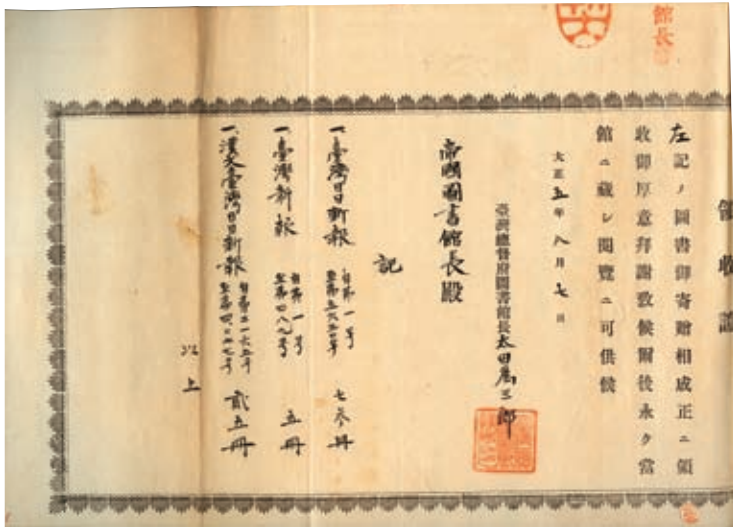 館長
領收證
左記ノ圖書御寄贈相成正ニ領
收御厚意拜謝致候爾後永ク當
館ニ藏シ閲覽ニ可供候
大正五年八月七日
臺灣總督府圖書館長太田為三郎
帝國圖書館長殿
記
一、臺灣日日新報 自第一号 七參冊
一、臺灣新報 自第一号 至第四八九号 五冊
一、漢文臺灣日日新報 貳五冊
以上